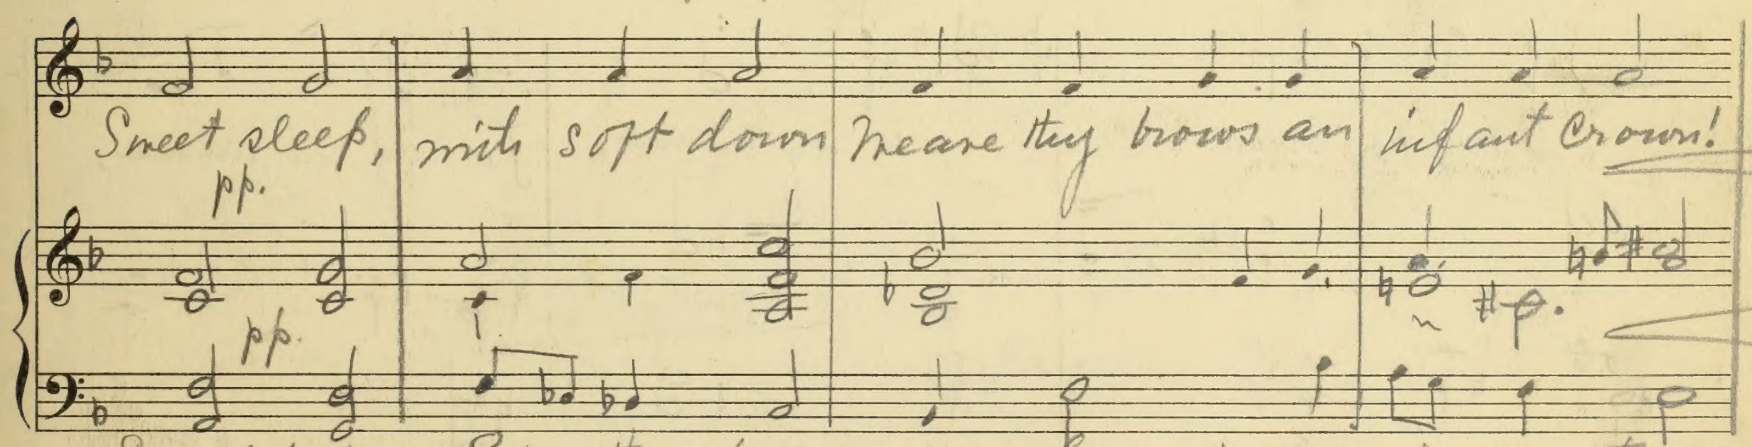 Sweet sleep, with soft down Weave thy brows an infant Crown!
pp.
pp.